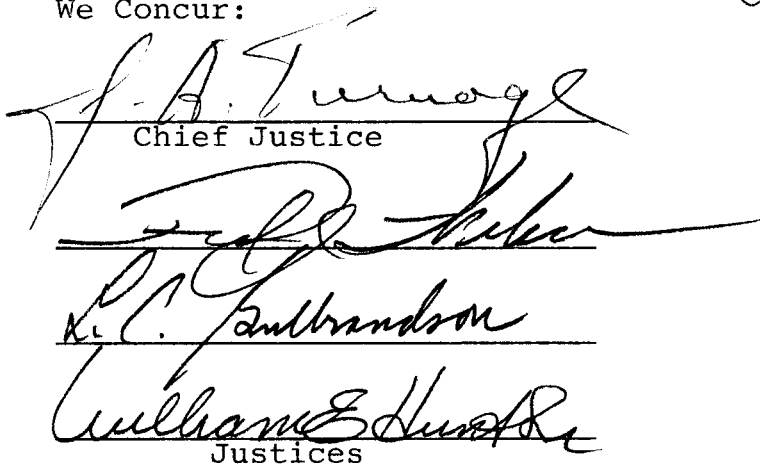 We Concur:
J. A. Turnage
Chief Justice
L. C. Gulbrandson
William E. Hunt, Sr.
Justices